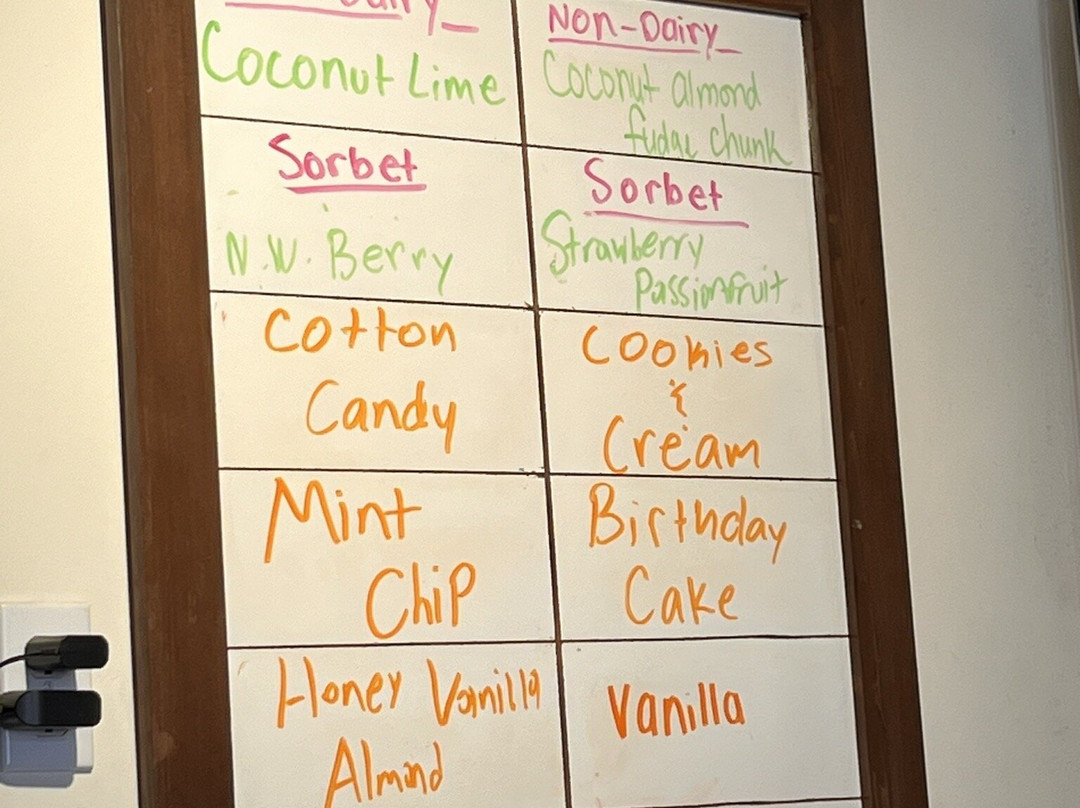 Dairy
Coconut Lime
Non-Dairy
Coconut almond
fudge chunk
Sorbet
N.W. Berry
Sorbet
Strawberry
Passionfruit
Cotton
Candy
Cookies
&
Cream
Mint
Chip
Birthday
Cake
Honey Vanilla
Almond
Vanilla